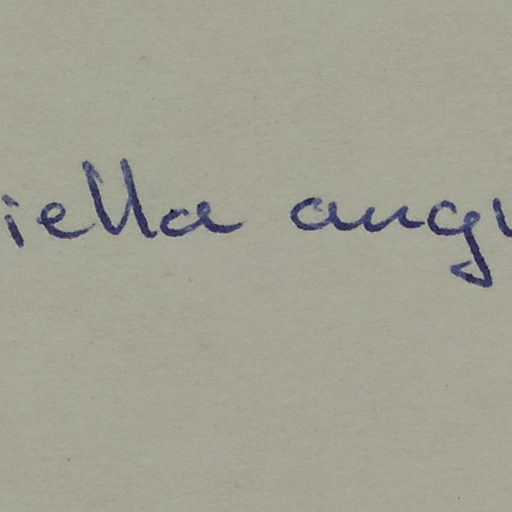 iella angu